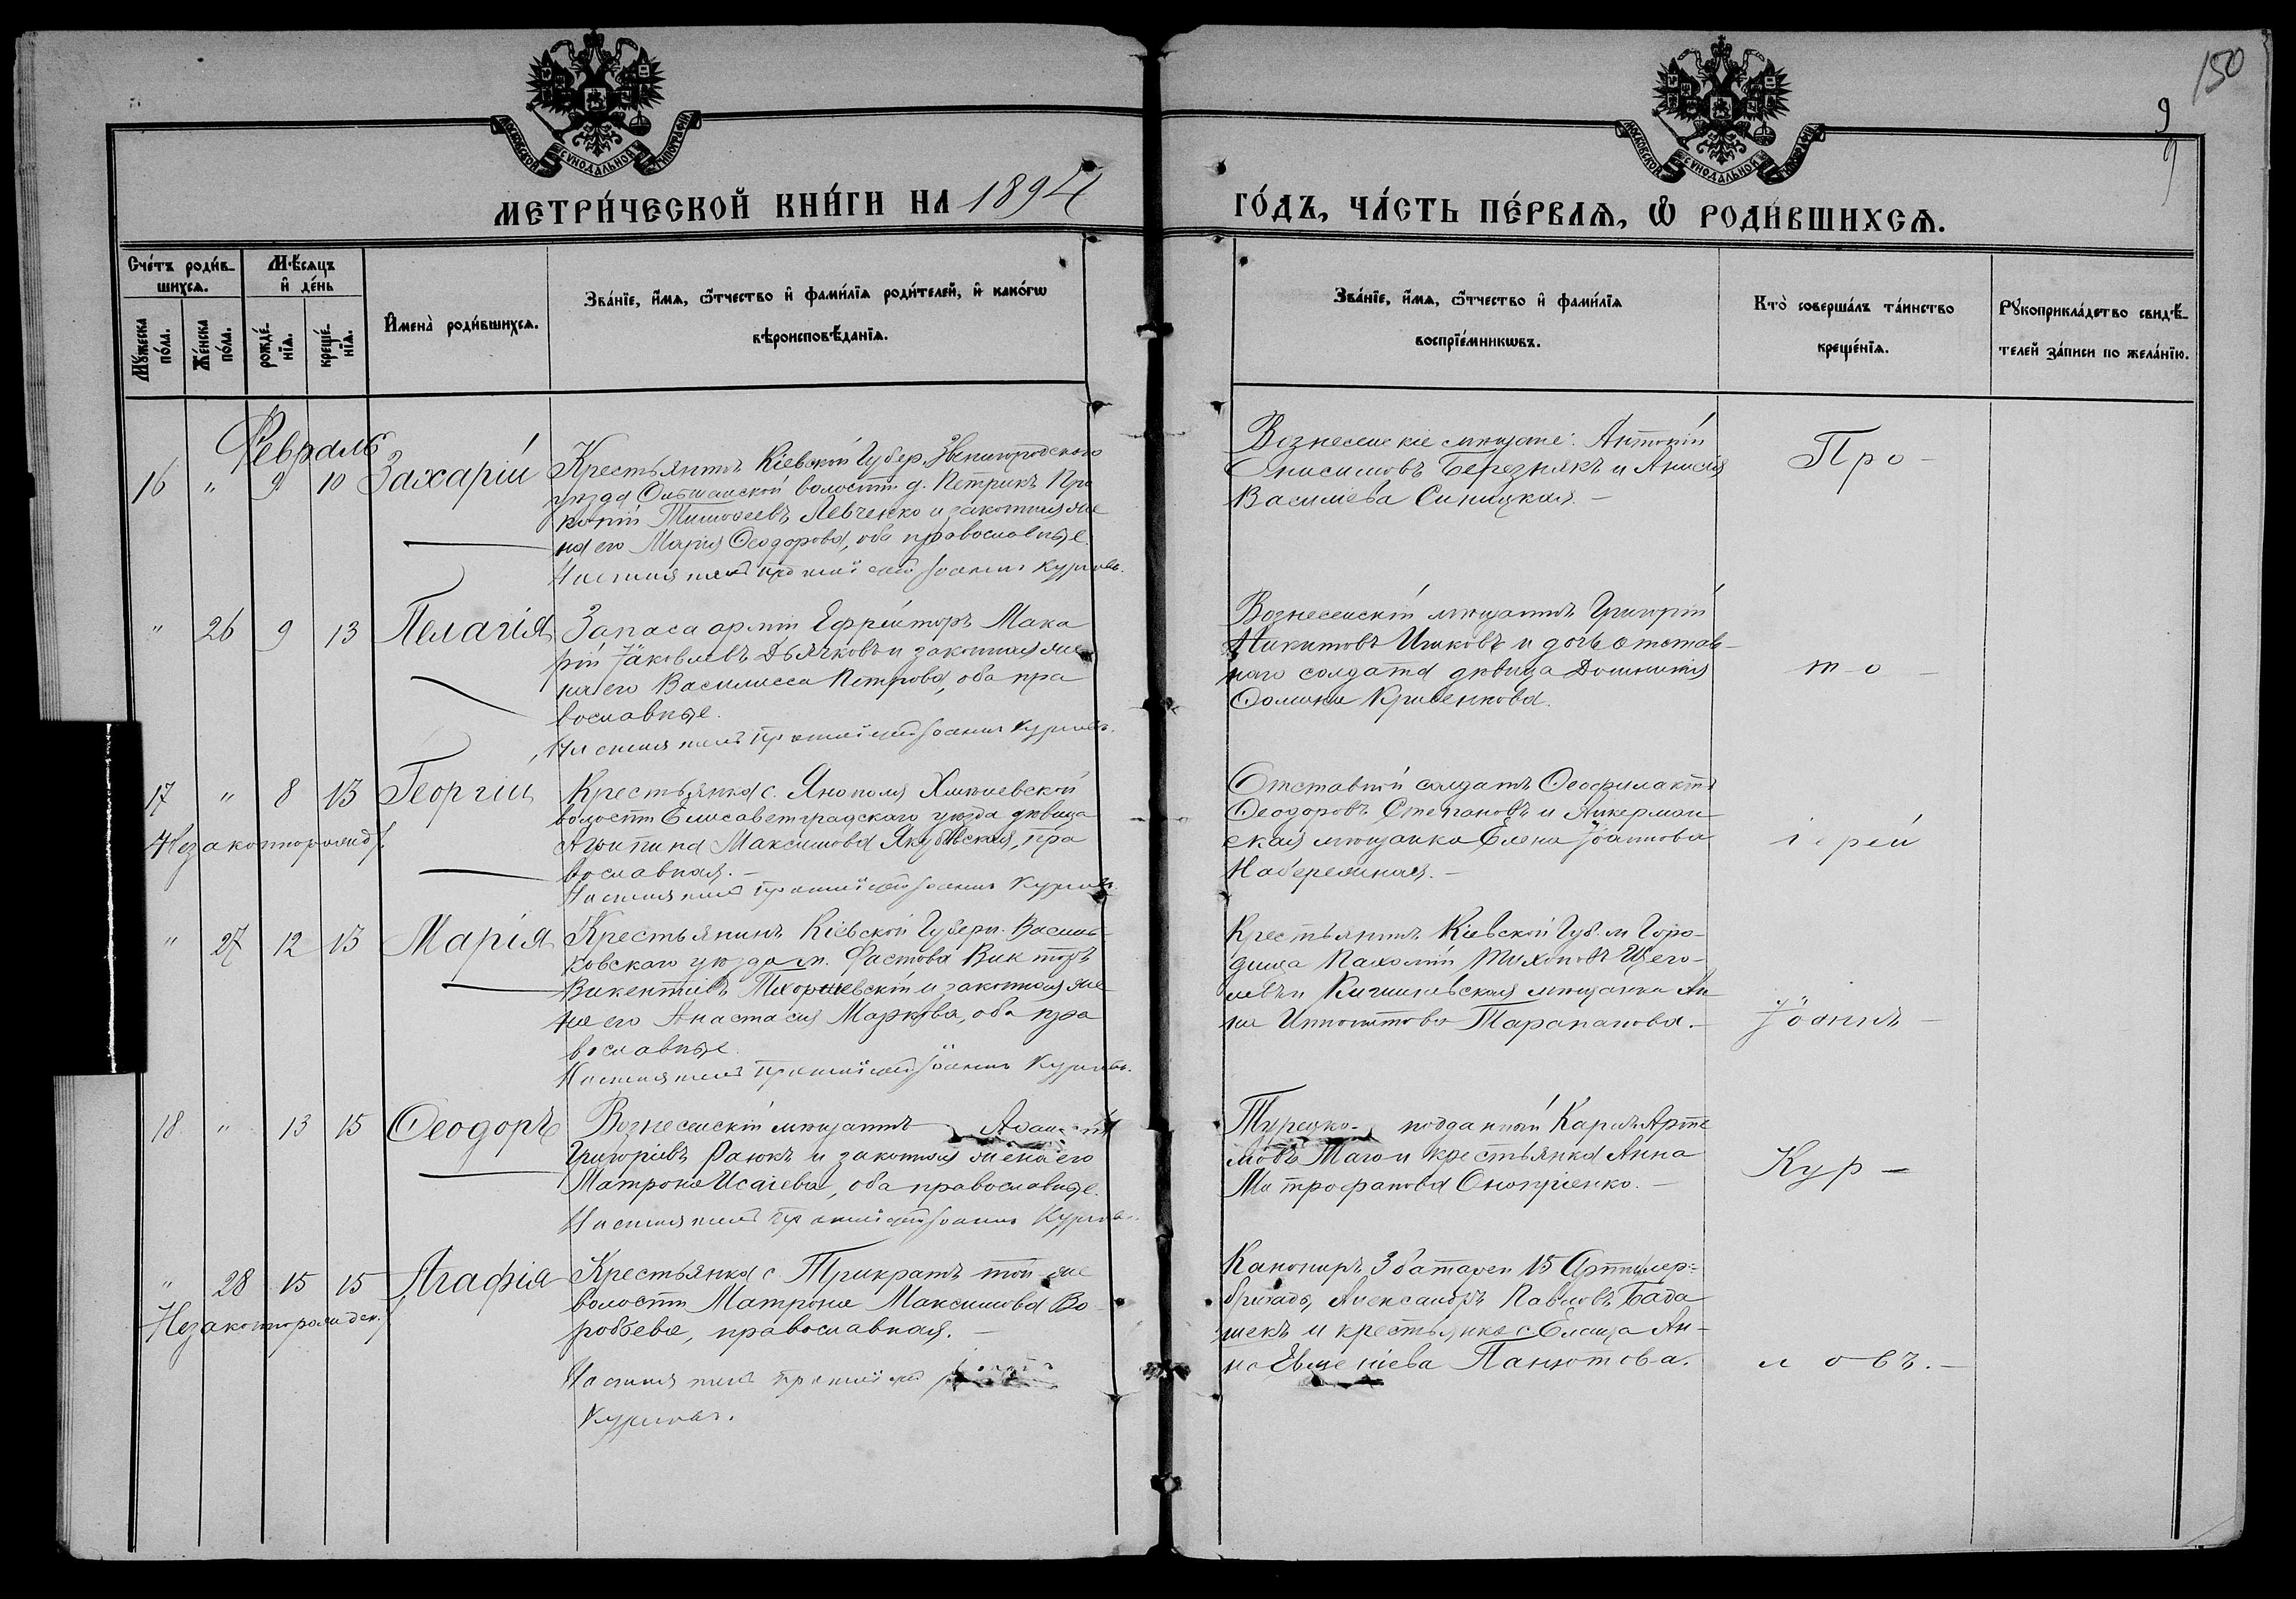 150
9
9
МОСКОВСКОЙ СУНОДАЛЬНОЙ ТИПОГРАФІИ
МОСКОВСКОЙ СУНОДАЛЬНОЙ ТИПОГРАФІИ
МЕТРИ́ЧЕСКОЙ КНИ́ГИ НА 1894
ГО́ДЪ, ЧА́СТЬ ПЕ́РВАѦ, Ѡ҆ РОДИ́ВШИХСѦ.
Сче́тъ роди́в-
шихсѧ.
Мꙋ́жеска по́ла.
Же́нска по́ла.
Мѣ́сѧцъ
и҆ де́нь
рожде́-нїѧ.
креще́-нїѧ.
И҆мена̀ роди́вшихсѧ.
Зва́нїе, и҆́мѧ, ѻ҆́тчество и҆ фами́лїѧ роди́телей, и҆ како́гѡ
вѣроисповѣ́данїѧ.
Зва́нїе, и҆́мѧ, ѻ҆́тчество и҆ фами́лїѧ
воспрїе́мникѡвъ.
Кто̀ соверша́лъ та́инство
креще́нїѧ.
Рꙋкоприкла́дство свидѣ́-
телей за́писи по жела́нїю.
Февраль
16 " 9 10 Захарій
Крестьянинъ Кіевской Губер. Звенигородского
уѣзда Ольшанской волости д. Петрикъ Про
копій Тимоѳеевъ Левченко и законная же
на его Марія Ѳеодорова, оба православные.
Настоятель протоіерей Іоаннъ Курловъ.
Вознесенскіе мѣщане: Антоній
Онисимовъ Березнякъ и Анисія
Василіева Синицкая –
Про-
" 26 9 13 Пелагія
Запаса арміи Ефрейторъ Мака
рій Іаковлевъ Дьячковъ и законная же
на его Василисса Петрова, оба пра
вославные.
Настоятель протоіерей Іоаннъ Курловъ.
Вознесенскій мѣщанинъ Григорій
Никитовъ Ишковъ и дочь отстав-
ного солдата дѣвица Домникія
Ѳомина Кривенкова.
то-
17 " 8 13 Георгій
Незаконнорожд.
Крестьянка с. Янополя
волости Елисаветградскаго уѣзда дѣвица
Агрипина Максимова Якубовская, пра
вославная. –
Настоятель протоіерей Іоаннъ Курловъ.
Отставной солдатъ Ѳеофилактъ
Ѳеодоровъ Степановъ и Аккерман-
ская мѣщанка Елена Іоаннова
Набережная. –
іерей
" 27 12 13 Марія
Крестьянинъ Кіевской Губерн. Василь-
ковскаго уѣзда м. Фастова Викторъ
Викентіевъ и законная же
на его Анастасія Маркова, оба пра
вославные.
Настоятель протоіерей Іоаннъ Курловъ.
Крестьянинъ Кіевской Губ. м. Горо-
дища Пахомій Тихоновъ Щего-
левъ и Кишиневская мѣщанка Ан
на Иннокентова Тарапанова. –
Іоаннъ –
18 " 13 15 Ѳеодоръ
Вознесенскій мѣщанинъ
Григоріевъ Раюкъ и законная жена его
Матрона Исаіева, оба православные.
Настоятель протоіерей Іоаннъ Курловъ.
Турецко- подданный Карпъ Арте
мовъ и крестьянка Анна
Митрофанова Оноприенко. –
Кур –
" 28 15 15 Агафія
Незаконнорожден.
Крестьянка с. Трикратъ той же
волости Матрона Максимова Во
робьева, православная. –
Настоятель протоіерей
Курловъ.
Канониръ 3 батареи 15 Артиллер:
бригады, Александръ Павловъ Бада
шекъ и крестьянка с. Еланца Ан-
на Евгеніева Панютова.
ловъ. –